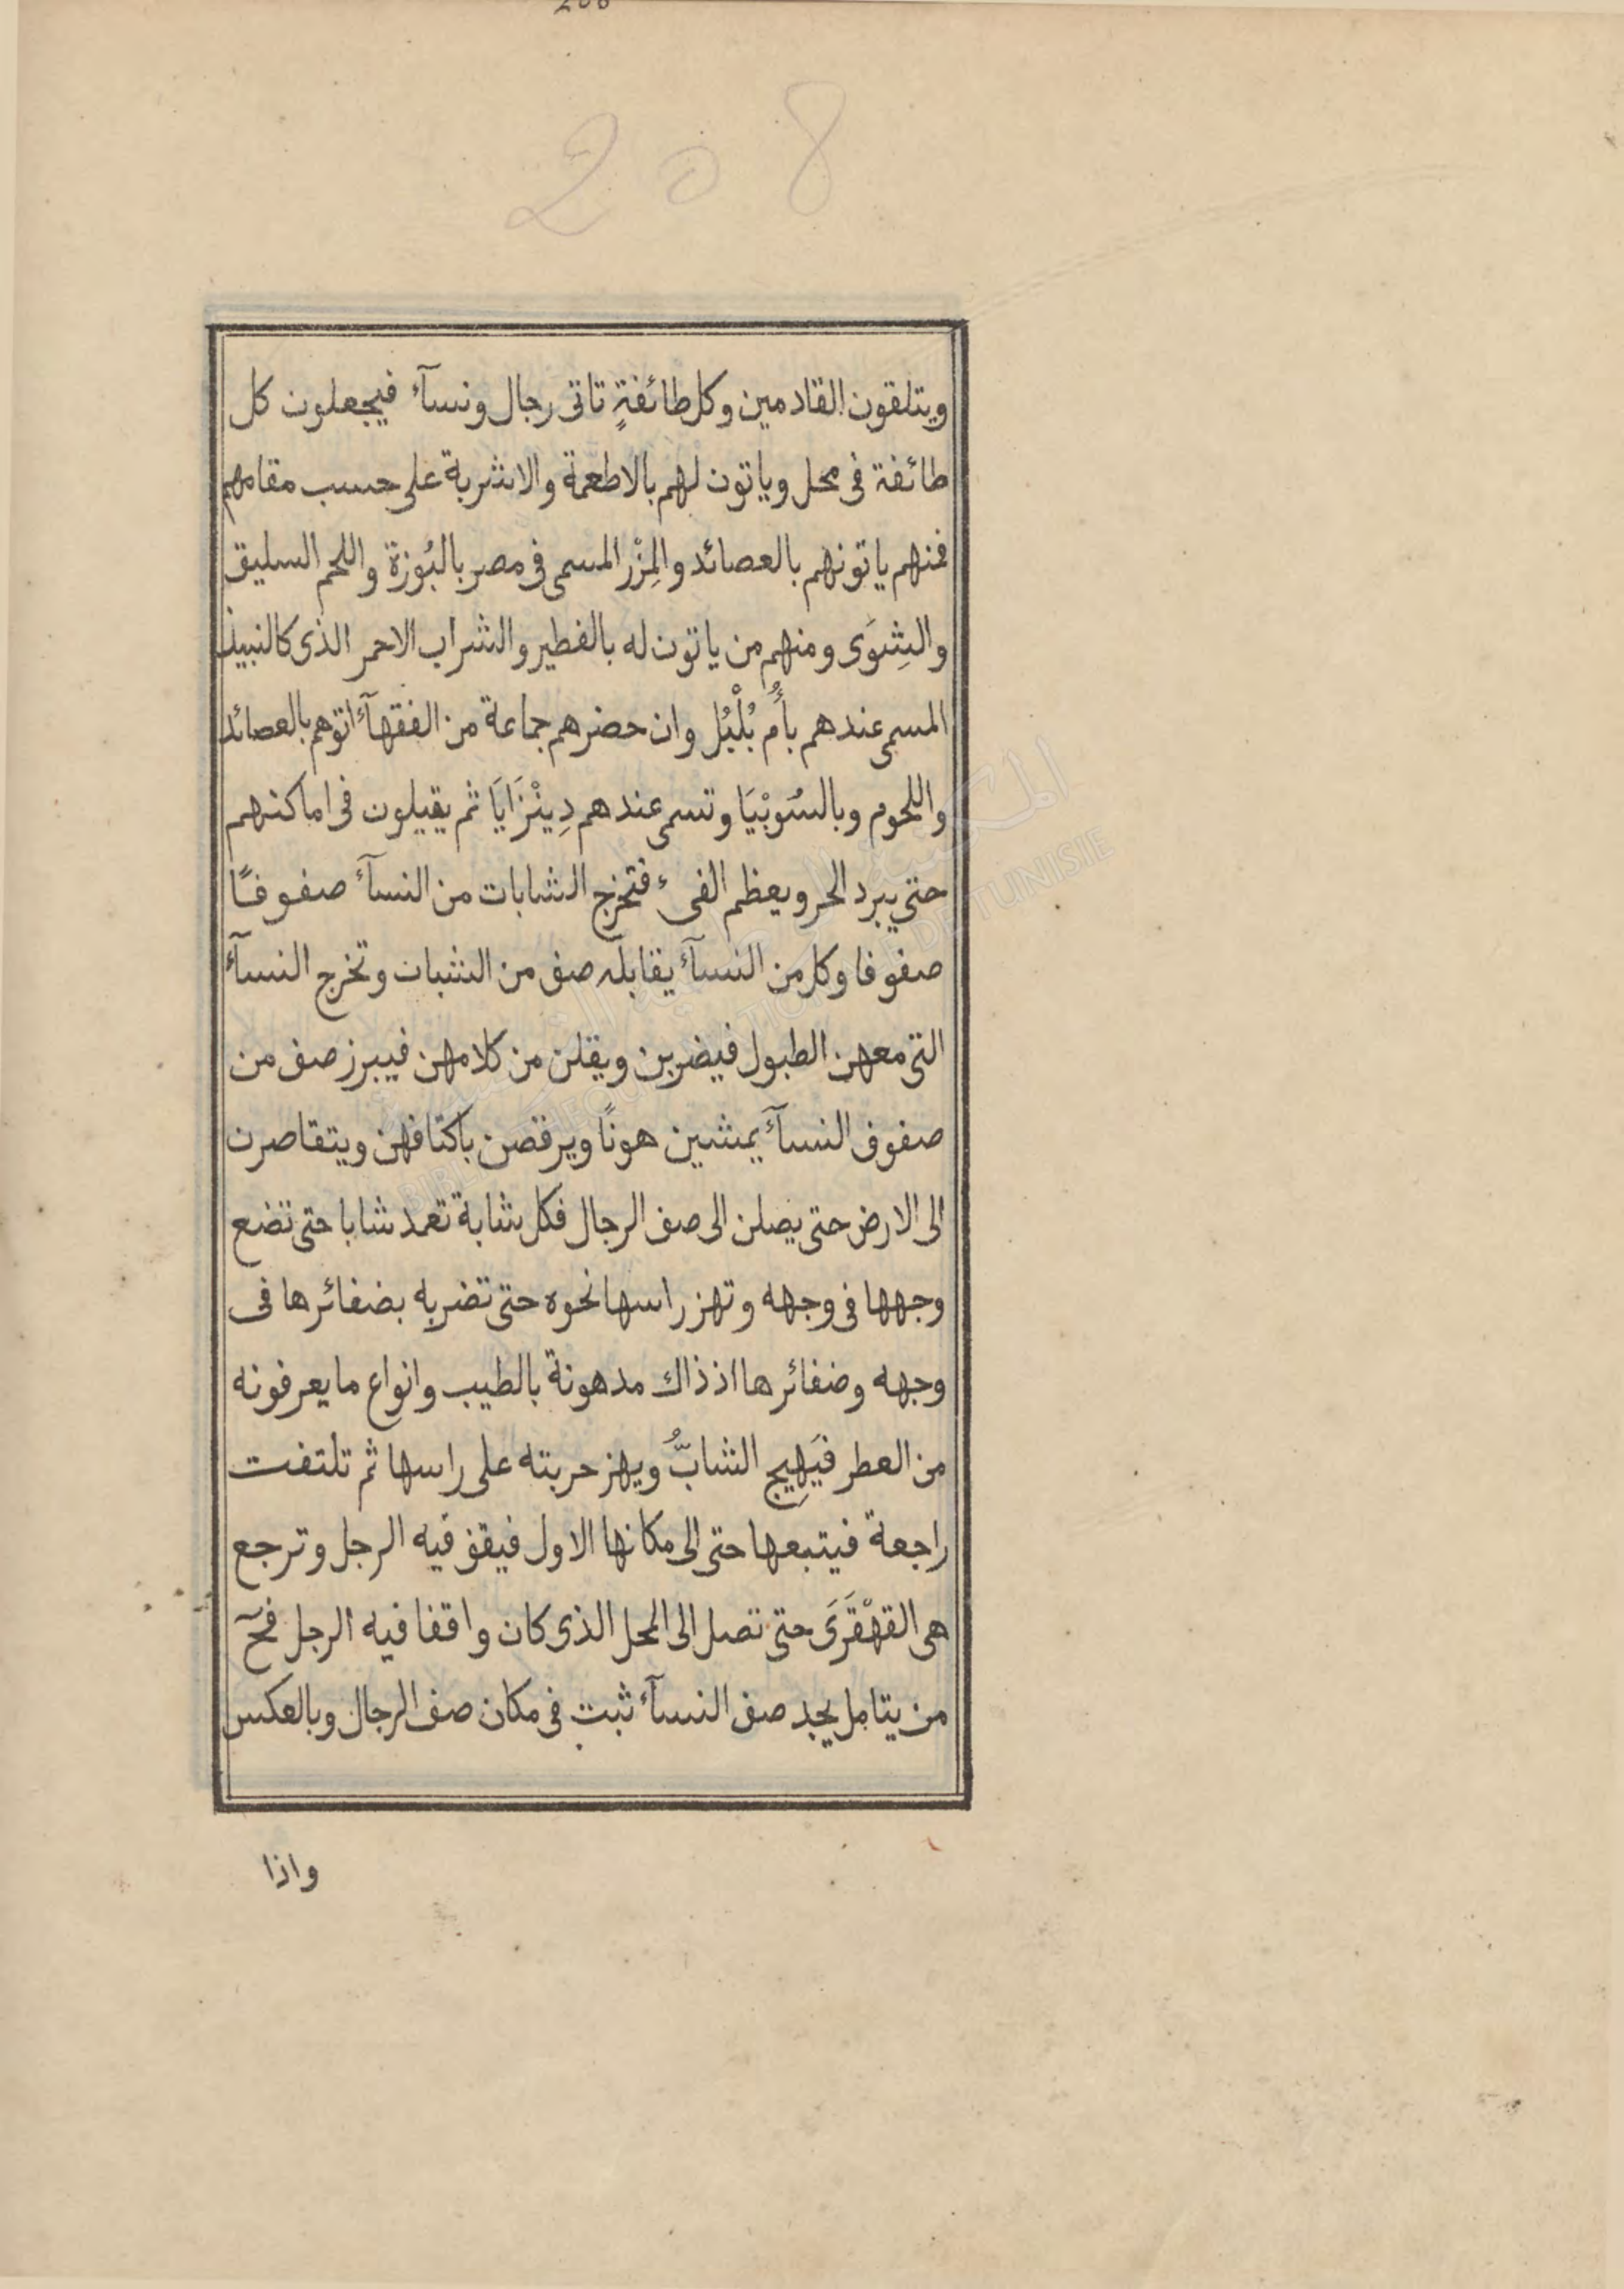 208
208
ويتلقون القادمين وكل طائفةٍ تاتى رجال ونسآء فيجعلون كل
طائفة فى محل وياتون لهم بالاطعمة والاشربة على حسب مقامهم
فمنهم ياتونهم بالعصائد والمِزْر المسمى فى مصر بالبُوزة واللحم السليق
والشِوَى ومنهم من ياتون له بالفطير والشراب الاحمر الذى كالنبيذ
المسمى عندهم بأُم بُلْبُل وان حضرهم جماعة من الفقهآء اتوهم بالعصائد
واللحوم وبالسُوبْيَا وتسمى عندهم دِينْزَايَا ثم يقيلون فى اماكنهم
حتى يبرد الحر ويعظم الفىء فتخرج الشابات من النسآء صفوفًا
صفوفا وكل من النسآء يقابله صف من الشبات وتخرج النسآء
التى معهن الطبول فيضربن ويقلن من كلامهن فيبرز صف من
صفوف النسآء يمشين هونًا ويرقصن باكتافهن ويتقاصرن
الى الارض حتى يصلن الى صف الرجال فكل شابة تعمد شابا حتى تضع
وجهها فى وجهه وتهز راسها نحوه حتى تضربه بضفائرها فى
وجهه وضفائرها اذ ذاك مدهونة بالطيب وانواع ما يعرفونه
من العطر فيَهِيج الشابُّ ويهز حربته على راسها ثم تلتفت
راجعة فيتبعها حتى الى مكانها الاول فيقف فيه الرجل وترجع
هى القهْقَرَى حتى تصل الى المحل الذى كان واقفا فيه الرجل فحٓ
من يتامل يجد صف النسآء ثبت فى مكان صف الرجال وبالعكس
واذا